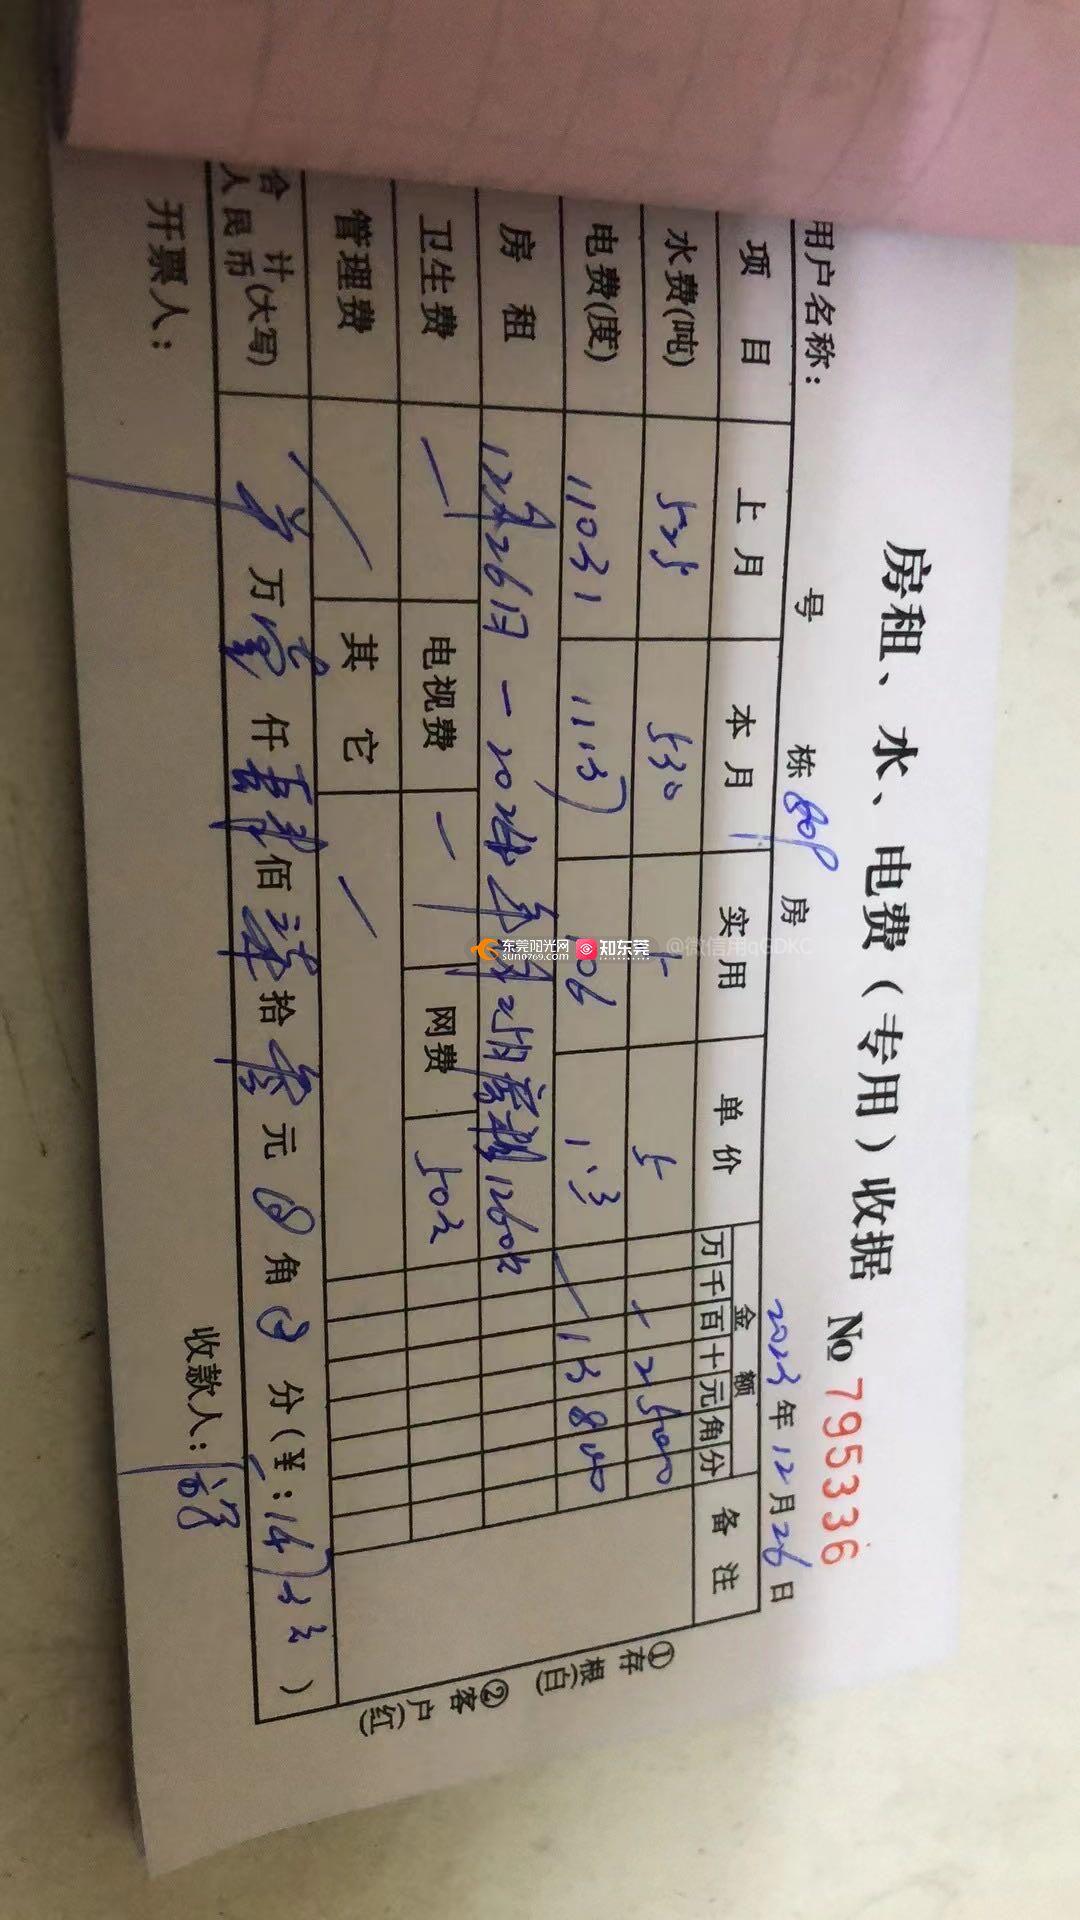 房租、水、电费（专用）收据 № 795336
用户名称： 号 栋 809 房 2023年12月26日
项目 上月 本月 实用 单价 金额 备注
万 千 百 十 元 角 分
水费(吨) 525 530 5 5 2500
电费(度) 11031 11137 106 1.3 13800
房租 12月26日一2024年 1260元
卫生费 电视费 网费 50元
管理费 其它
合计(大写)
人民币 万壹仟肆佰柒拾叁元0角0分(￥:1473元)
开票人： 收款人：
①存根(白) ②客户(红)
东莞阳光网
sun0769.com
知东莞
@微信用qGDKC